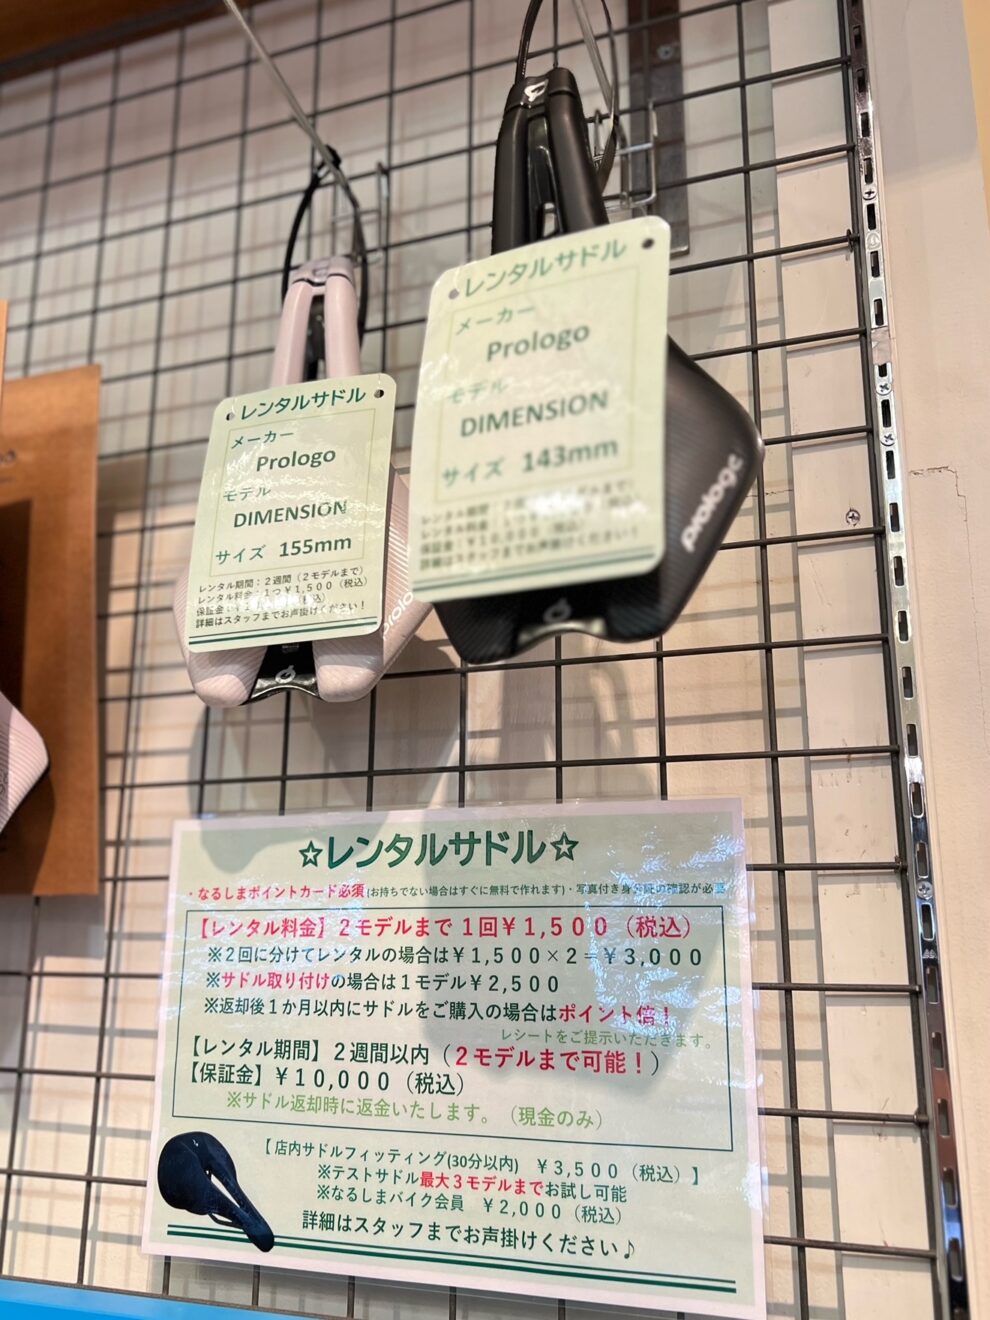 レンタルサドル
メーカー
Prologo
モデル
DIMENSION
サイズ 155mm
レンタル期間：２週間（２モデルまで）
レンタル料金：１つ￥１,５００（税込）
詳細はスタッフまでお声掛けください！
prologo
レンタルサドル
メーカー
Prologo
モデル
DIMENSION
サイズ 143mm
詳細はスタッフまでお声掛けください！
prologo
☆レンタルサドル☆
・なるしまポイントカード必須(お持ちでない場合はすぐに無料で作れます)・写真付き身分証の確認が必要
【レンタル料金】２モデルまで １回￥１,５００（税込）
※２回に分けてレンタルの場合は￥１,５００×２＝￥３,０００
※サドル取り付けの場合は１モデル￥２,５００
※返却後１か月以内にサドルをご購入の場合はポイント倍！
レシートをご提示いただきます。
【レンタル期間】２週間以内（２モデルまで可能！）
【保証金】￥１０,０００（税込）
※サドル返却時に返金いたします。（現金のみ）
【店内サドルフィッティング(30分以内)　￥３,５００（税込）】
※テストサドル最大３モデルまでお試し可能
※なるしまバイク会員　￥２,０００（税込）
詳細はスタッフまでお声掛けください♪